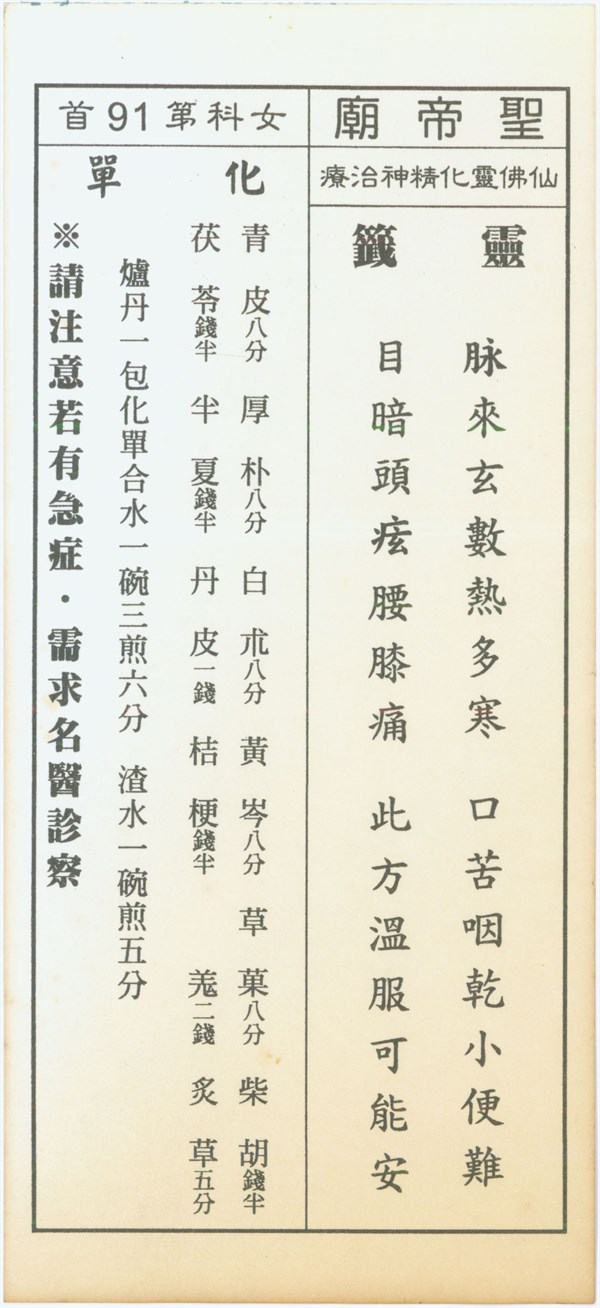 聖帝廟
仙佛靈化精神治療
靈籤
脉來玄數熱多寒 口苦咽乾小便難
目暗頭痃腰膝痛 此方溫服可能安
女科第91首
化單
青皮八分 厚朴八分 白朮八分 黃岑八分 草菓八分 柴胡錢半
茯苓錢半 半夏錢半 丹皮一錢 桔梗錢半 羗二錢 炙草五分
爐丹一包化單合水一碗三煎六分 渣水一碗煎五分
※請注意若有急症．需求名醫診察